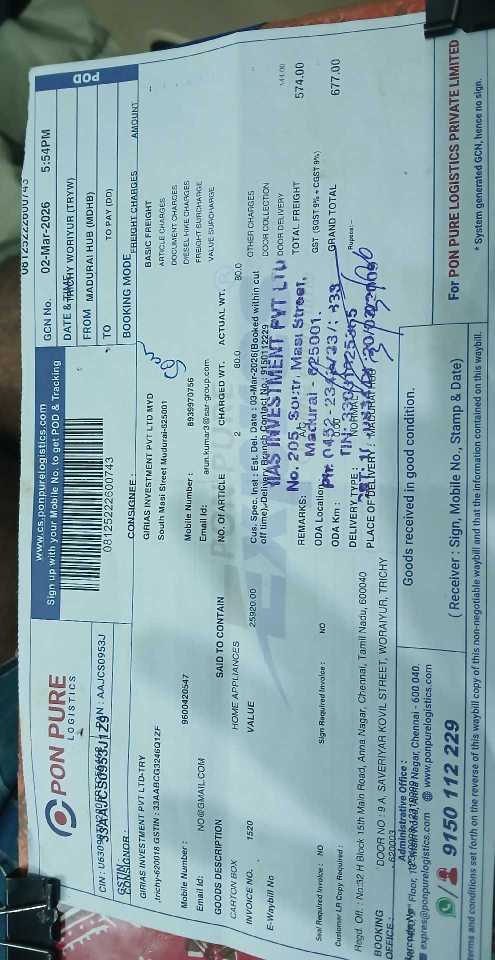 PON PURE
LOGISTICS
www.cs.ponpurelogistics.com
Sign up with your Mobile No. to get POD & Tracking
POD
081252222600743
081252222600743
GCN No. 02-Mar-2026 5:54PM
DATE & TIME
TRICHY WORIYUR (TRYW)
FROM MADURAI HUB (MDHB)
TO TO PAY (DD)
BOOKING MODE
PAN : AAJCS0953J
33AAJCS0953J1Z9
CONSIGNOR :
GIRIAS INVESTMENT PVT LTD-TRY
,trichy-620018 GSTIN : 33AABCG3246Q1ZF
Mobile Number : 9600420547
Email Id: NO@GMAIL.COM
CONSIGNEE :
GIRIAS INVESTMENT PVT LTD MYD
South Masi Street Madurai-625001
Mobile Number : 8939970756
Email Id: arun.kumar3@sar-group.com
FREIGHT CHARGES AMOUNT
BASIC FREIGHT
ARTICLE CHARGES
DOCUMENT CHARGES
DIESEL HIKE CHARGES
FREIGHT SURCHARGE
VALUE SURCHARGE
OTHER CHARGES
DOOR COLLECTION
DOOR DELIVERY
TOTAL FREIGHT 574.00
GST (SGST 9% + CGST 9%)
GRAND TOTAL 677.00
Rupees:-
GOODS DESCRIPTION SAID TO CONTAIN NO. OF ARTICLE CHARGED WT. ACTUAL WT.
CARTON BOX HOME APPLIANCES 2 80.0 80.0
INVOICE NO. 1520 VALUE 25920.00
E-Waybill No
Cus. Spec. Inst : Est. Del. Date : 03-Mar-2026(Booked within cut
off time),Delivery Branch Contact No: 9150112229
REMARKS:
ODA Location:
ODA Km :
DELIVERY TYPE : NORMAL
PLACE OF DELIVERY : MADURAI HUB
IAS INVESTMENT PVT LTD
No. 205, South Masi Street,
Madurai - 625001.
Seal Required Invoice : NO Sign Required Invoice : NO
Customer LR Copy Required :
Regd. Off. : No:32 H Block 15th Main Road, Anna Nagar, Chennai, Tamil Nadu, 600040
BOOKING OFFICE : DOOR NO : 9 A, SAVERIYAR KOVIL STREET, WORAIYUR, TRICHY
620003
Administrative Office :
Floor, 13th Main Road, Anna Nagar, Chennai - 600 040.
expres@ponpurelogistics.com www.ponpurelogistics.com
9150 112 229
Goods received in good condition.
( Receiver : Sign, Mobile No., Stamp & Date)
For PON PURE LOGISTICS PRIVATE LIMITED
* System generated GCN, hence no sign.
terms and conditions set forth on the reverse of this waybill copy of this non-negotiable waybill and that the information contained on this waybill.